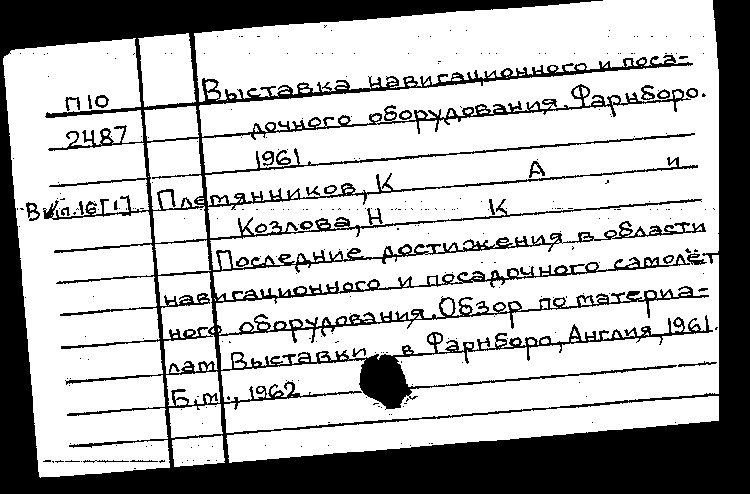 П10
2487
Вып.16[1]
Выставка навигационного и поса-
дочного оборудования. Фарнборо.
1961.
Плетянников, К А и
Козлова, Н К
Последние достижения в области
навигационного и посадочного самолёт
ного оборудования. Обзор по материа-
лам Выставки в Фарнборо, Англия, 1961.
Б.м., 1962